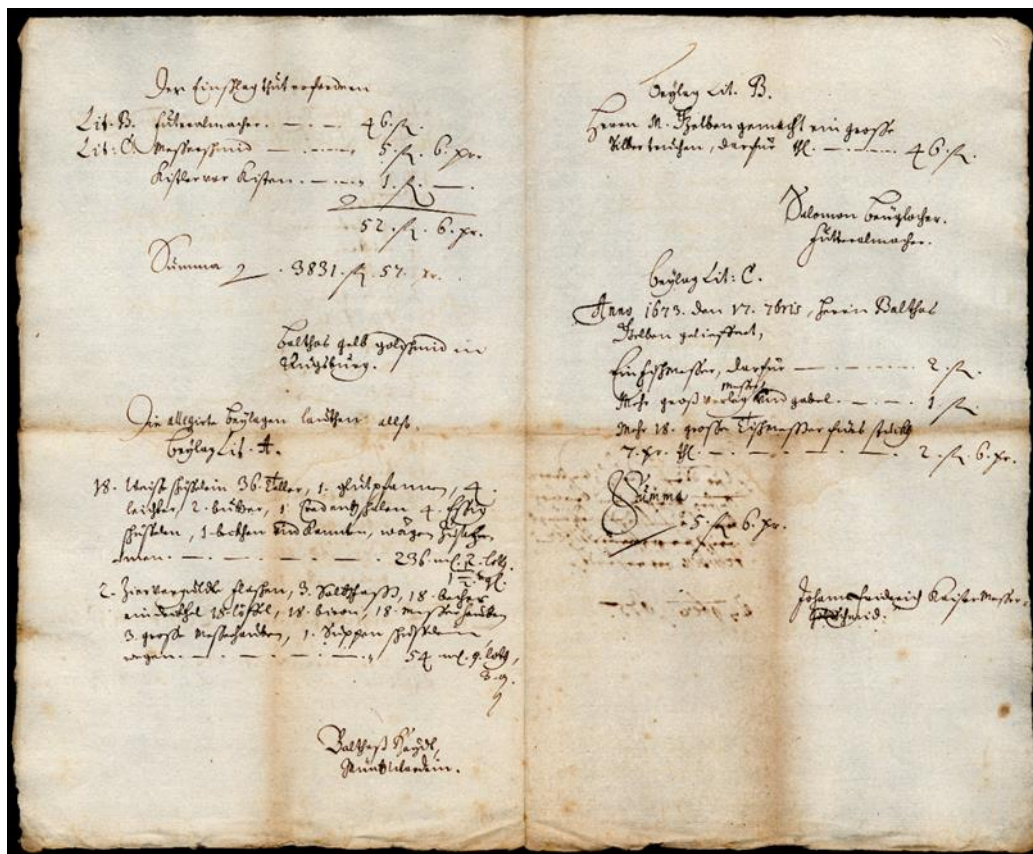 Der Einschlag thut erfordern
Lit. B. Futeralmacher. — . — . 46. fl.
Lit: C. Messerschmid — . — 5. fl. 6. xr.
Kistler vor Kisten. — . — 1. fl. — .
52. fl. 6. xr.
Summa . 3831. fl. 57. xr.
Balthas gelb goldschmid in
Augsburg.
Die allegirte beylagen lauthen allso.
beylag Lit. A.
18. Weise schisselein 36. Teller, 1. glutpfannen, 4.
leichter, 2. 1. Credentzschalen 4. Essig
schisselen, 1. beckhen und Kannen, wägen zusa
men — . — . — . — 236. m. 2. loth.
1
2. Ziervergulde flaschen, 3. Saltzfass, 18. becher
ein 18. löffel, 18. 18. Messerhauben
3. grosse Messerhauben, 1. Suppen schisselen
wegen. — . — . — . — 54. m. 9. loth,
3. q.
Balthas
Müntz Wardein.
beylag Lit. B.
Herrn M. Gelben gemacht ein grosse
Silber truchen, darfür fl. — . — . 46. fl.
Salomon
Futteralmacher.
beylag Lit: C.
Anno 1673. den 17. 7bris, herrn Balthas
Gelben geliefert,
Ein fischmesser, darfür — . — . — 2. fl.
Messer,
Mehr gross vorleg und gabel. — . — . 1 fl.
Mehr 18. grosse Tischmesser fürs stückh
7. xr. fl. — . — . — . — . 2. fl. 6. xr.
Summa
5. fl. 6. xr.
Johann Friderich Messer
schmid.